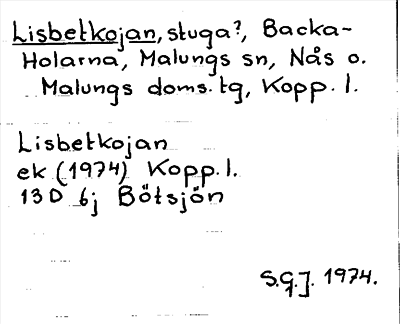 Lisbetkojan, stuga?, Backa-
Holarna, Malungs sn, Nås o.
Malungs doms. tg, Kopp. l.
Lisbetkojan
ek (1974) Kopp. l.
13 D 6j Bötsjön
S.G.J. 1974.